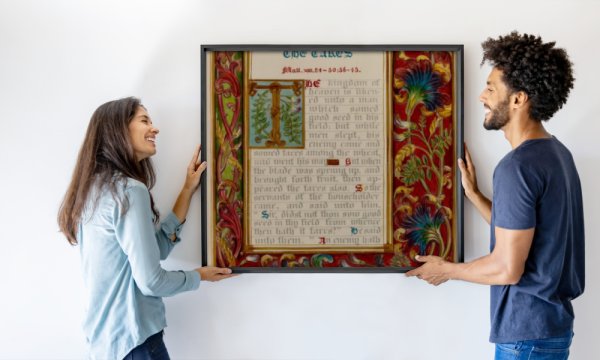 THE TARES
Matt. xiii. 24–30; 36–43.
THE kingdom of
heaven is liken
ed unto a man
which sowed
good seed in his
field, but while
men slept, his
enemy came and
sowed tares among the wheat,
and went his way. But when
the blade was sprung up, and
brought forth fruit, then ap
peared the tares also. So the
servants of the householder
came, and said unto him,
Sir, didst not thou sow good
seed in thy field from whence
then hath it tares?" He said
unto them, "An enemy hath